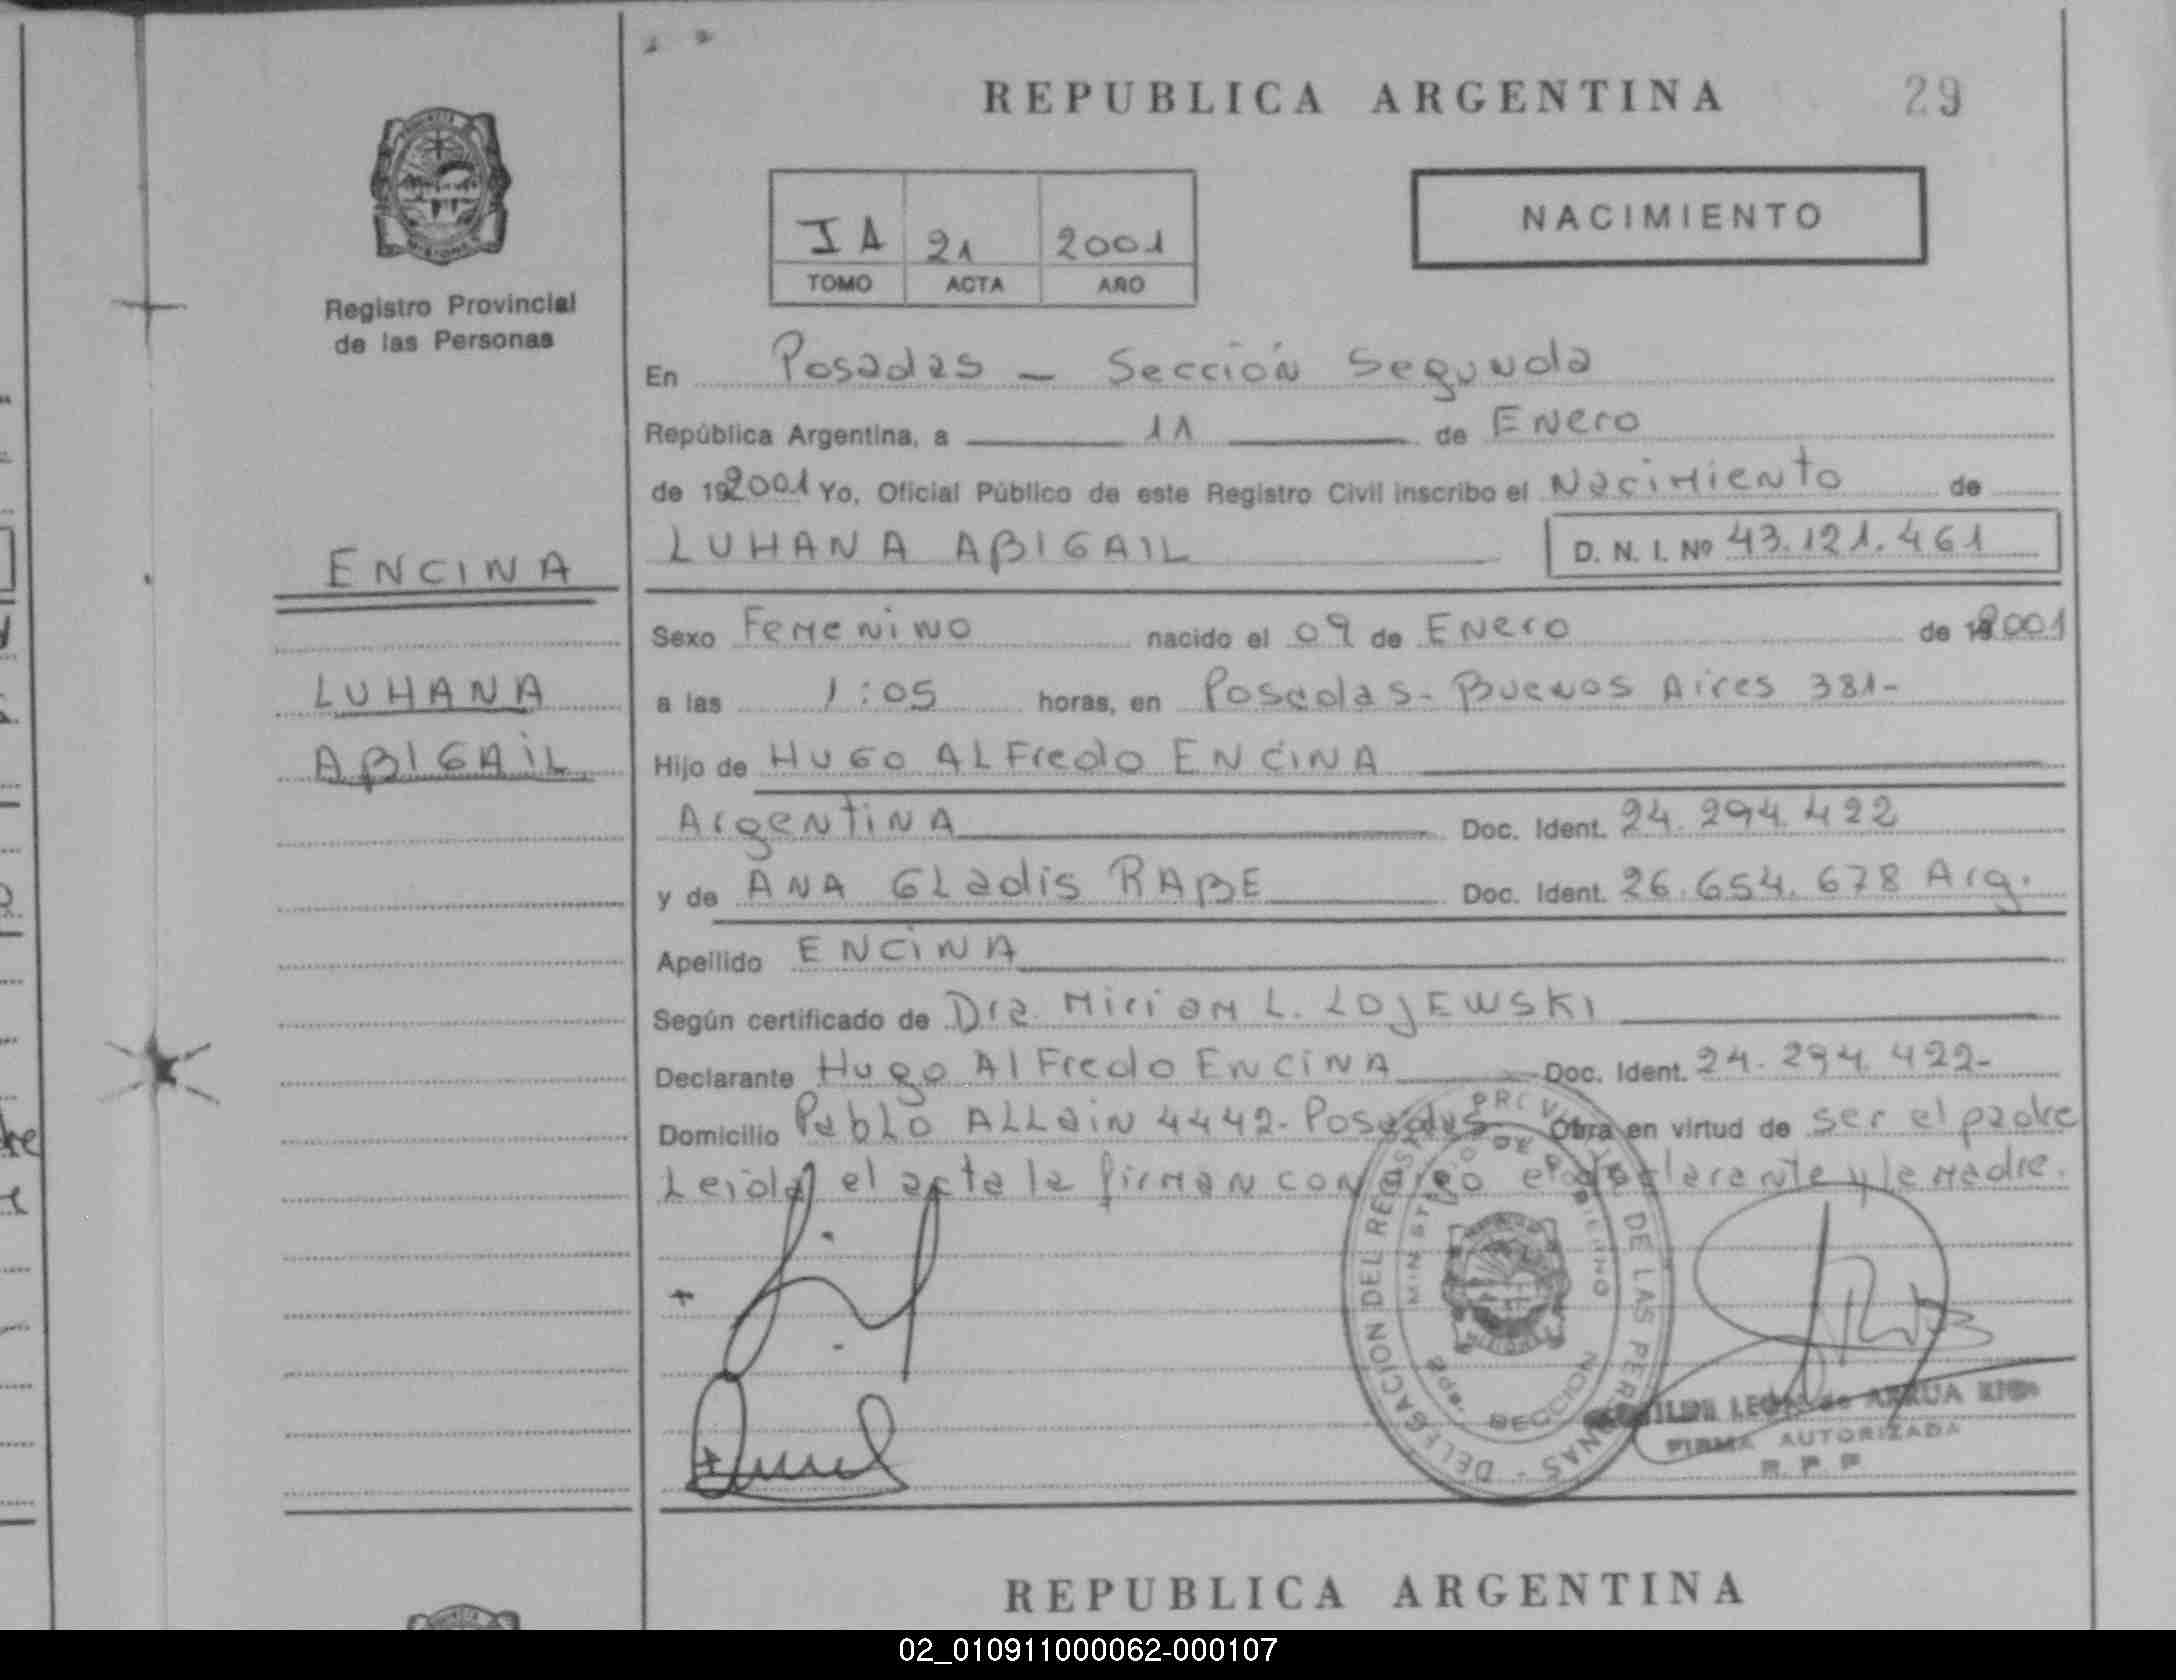 REPUBLICA ARGENTINA 29
NACIMIENTO
I A 21 2001
TOMO ACTA AÑO
Registro Provincial
de las Personas
En Posadas — Sección Segunda
República Argentina, a 11 de Enero
de 192001 Yo, Oficial Público de este Registro Civil inscribo el Nacimiento de
LUHANA ABIGAIL D. N. I. Nº 43.121.461
ENCINA
LUHANA
ABIGAIL
Sexo Femenino nacido el 09 de Enero de 2001
a las 1:05 horas, en Posadas - Buenos Aires 381-
Hijo de HUGO ALFredo ENCINA
ArgentiNA Doc. Ident. 24.294.422
y de ANA GLadis RABE Doc. Ident. 26.654.678 Arg.
Apellido ENCINA
Según certificado de Dra. Miriam L. LOJEWSKI
Declarante Hugo AlFredo ENCINA Doc. Ident. 24.294.422-
Domicilio Pablo ALLain 4442- Posadas Obra en virtud de ser el padre
Leida el acta la firman conmigo el declarante y la madre.
DELEGACION DEL REGISTRO PROVINCIAL DE LAS PERSONAS
MINISTERIO DE GOBIERNO
SECCION 2da.
LEON de ARRUA
FIRMA AUTORIZADA
R. P. P.
REPUBLICA ARGENTINA
02_010911000062-000107